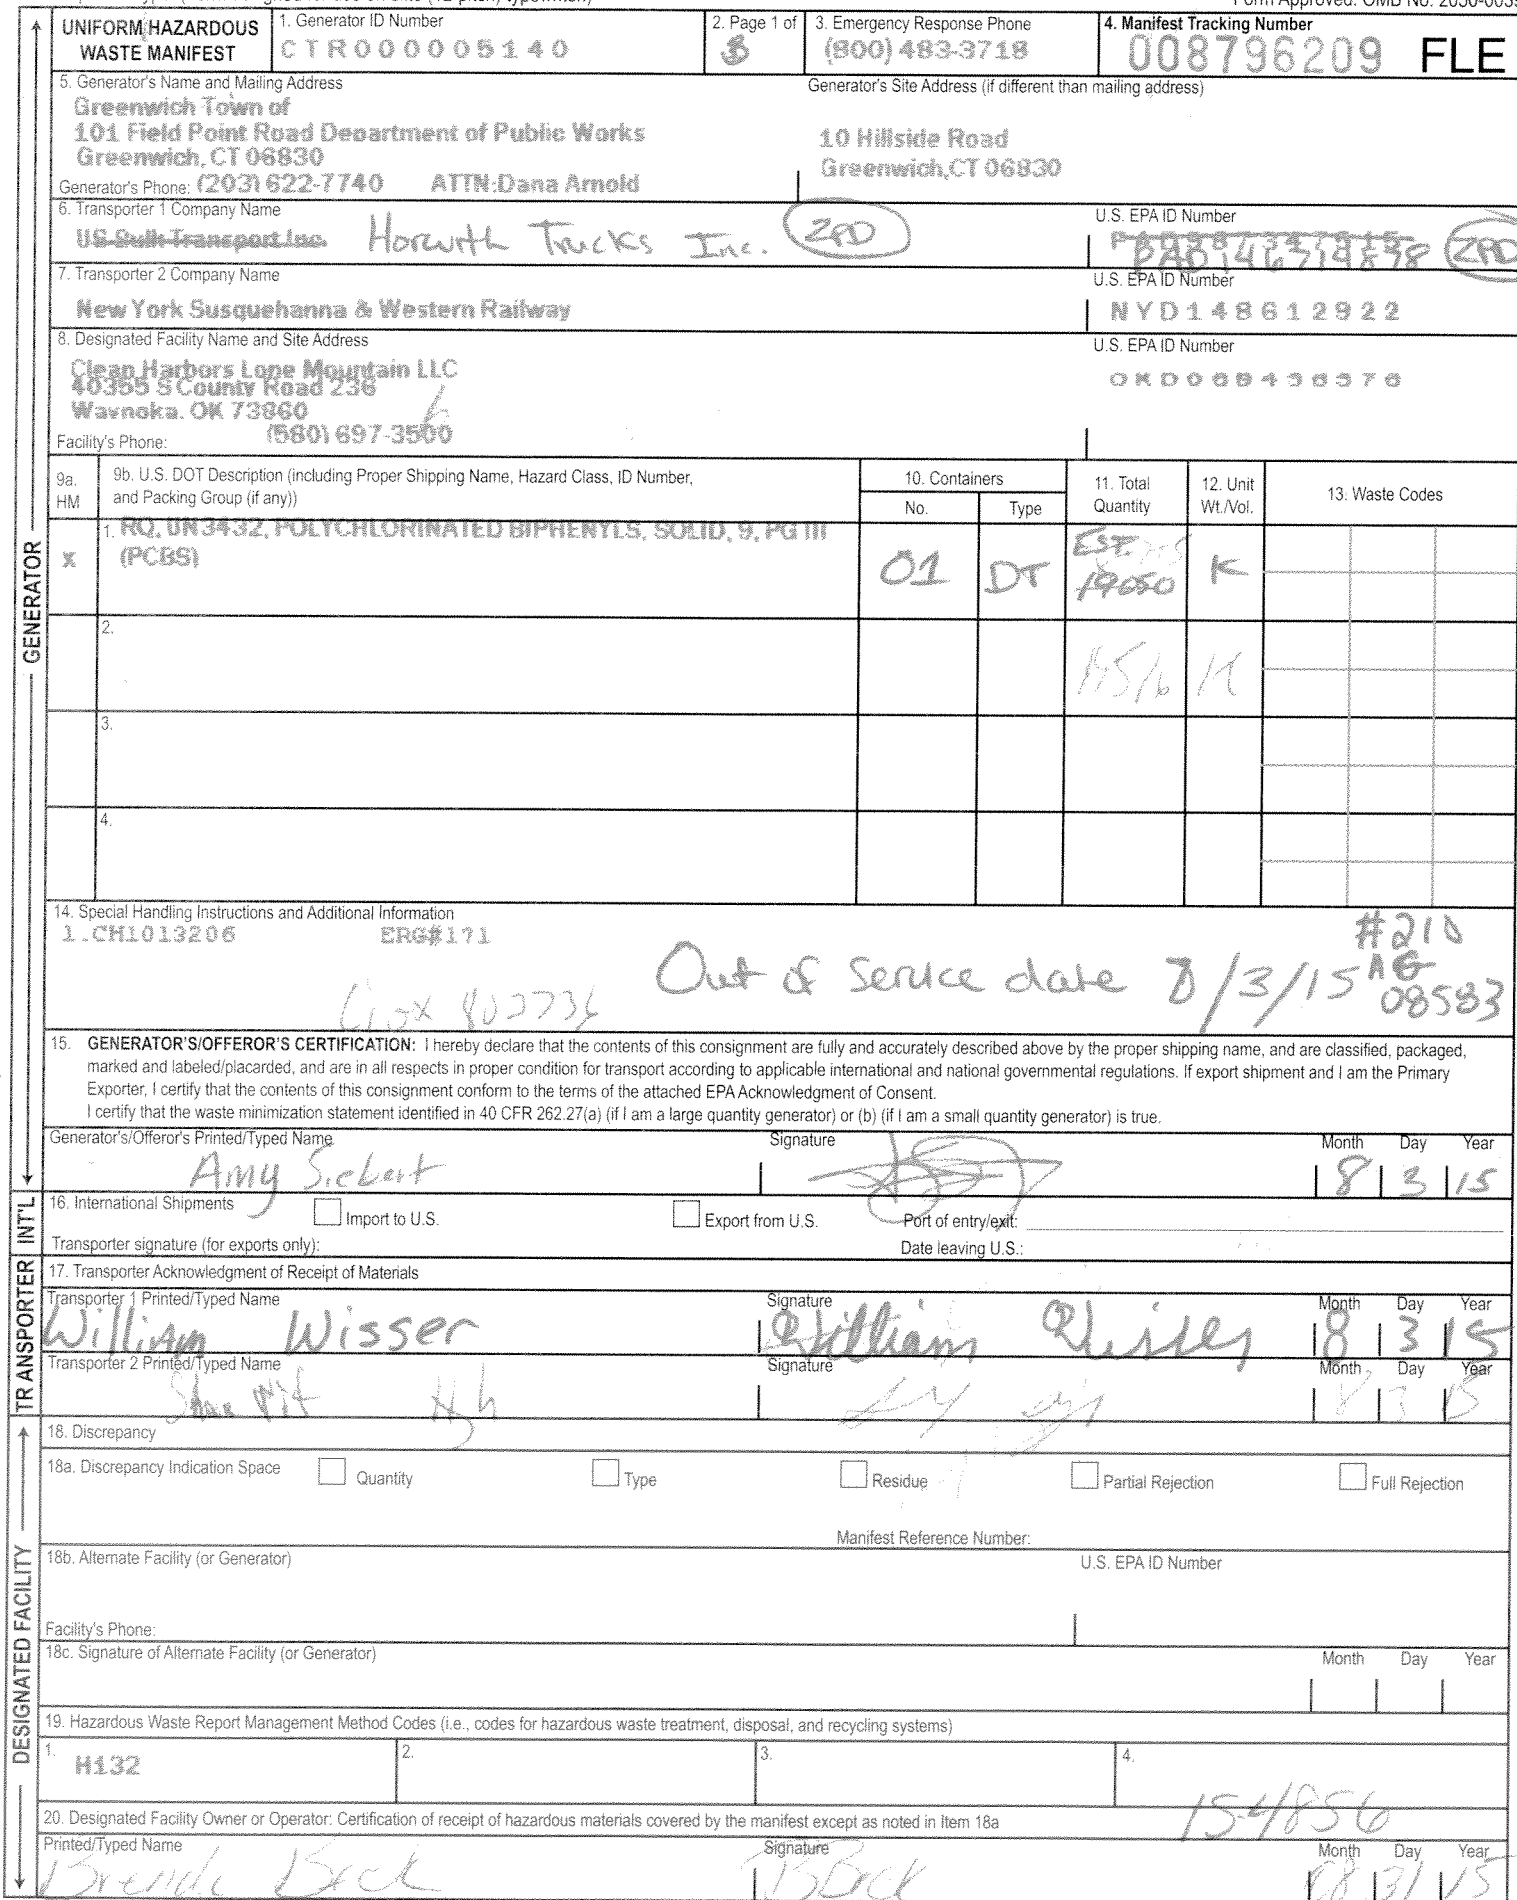 UNIFORM HAZARDOUS
WASTE MANIFEST
1. Generator ID Number
CTR000005140
2. Page 1 of
3
3. Emergency Response Phone
(800) 483-3718
4. Manifest Tracking Number
008796209 FLE
5. Generator's Name and Mailing Address
Generator's Site Address (if different than mailing address)
Greenwich Town of
101 Field Point Road Department of Public Works
Greenwich, CT 06830
10 Hillside Road
Greenwich,CT 06830
Generator's Phone: (203) 622-7740 ATTN:Dana Arnold
6. Transporter 1 Company Name
U.S. EPA ID Number
US Bulk Transport Inc. Horwith Trucks Inc. ZPD
PAD146714878 ZPD
7. Transporter 2 Company Name
U.S. EPA ID Number
New York Susquehanna & Western Railway
NYD148612922
8. Designated Facility Name and Site Address
U.S. EPA ID Number
Clean Harbors Lone Mountain LLC
40355 S County Road 236
Waynoka. OK 73860
OKD065438376
Facility's Phone: (580) 697-3500
9a. HM
9b. U.S. DOT Description (including Proper Shipping Name, Hazard Class, ID Number,
and Packing Group (if any))
10. Containers
No.
Type
11. Total Quantity
12. Unit Wt./Vol.
13. Waste Codes
X
1. RQ, UN3432, POLYCHLORINATED BIPHENYLS, SOLID, 9, PG III
(PCBS)
01
DT
EST.
19050
K
2.
K
3.
4.
14. Special Handling Instructions and Additional Information
1.CH1013206 ERG#171
Out of Service date 8/3/15
#210
AG
08583
15. GENERATOR'S/OFFEROR'S CERTIFICATION: I hereby declare that the contents of this consignment are fully and accurately described above by the proper shipping name, and are classified, packaged,
marked and labeled/placarded, and are in all respects in proper condition for transport according to applicable international and national governmental regulations. If export shipment and I am the Primary
Exporter, I certify that the contents of this consignment conform to the terms of the attached EPA Acknowledgment of Consent.
I certify that the waste minimization statement identified in 40 CFR 262.27(a) (if I am a large quantity generator) or (b) (if I am a small quantity generator) is true.
Generator's/Offeror's Printed/Typed Name
Signature
Month Day Year
Amy Siebert
8 3 15
16. International Shipments
Import to U.S.
Export from U.S.
Port of entry/exit:
Transporter signature (for exports only):
Date leaving U.S.:
17. Transporter Acknowledgment of Receipt of Materials
Transporter 1 Printed/Typed Name
Signature
Month Day Year
William Wisser
William Wisser
8 3 15
Transporter 2 Printed/Typed Name
Signature
Month Day Year
8 3 15
18. Discrepancy
18a. Discrepancy Indication Space
Quantity
Type
Residue
Partial Rejection
Full Rejection
Manifest Reference Number:
18b. Alternate Facility (or Generator)
U.S. EPA ID Number
Facility's Phone:
18c. Signature of Alternate Facility (or Generator)
Month Day Year
19. Hazardous Waste Report Management Method Codes (i.e., codes for hazardous waste treatment, disposal, and recycling systems)
1. H132
2.
3.
4.
154856
20. Designated Facility Owner or Operator: Certification of receipt of hazardous materials covered by the manifest except as noted in Item 18a
Printed/Typed Name
Signature
Month Day Year
Brenda Beck
BBeck
08 31 15
GENERATOR
INT'L
TRANSPORTER
DESIGNATED FACILITY